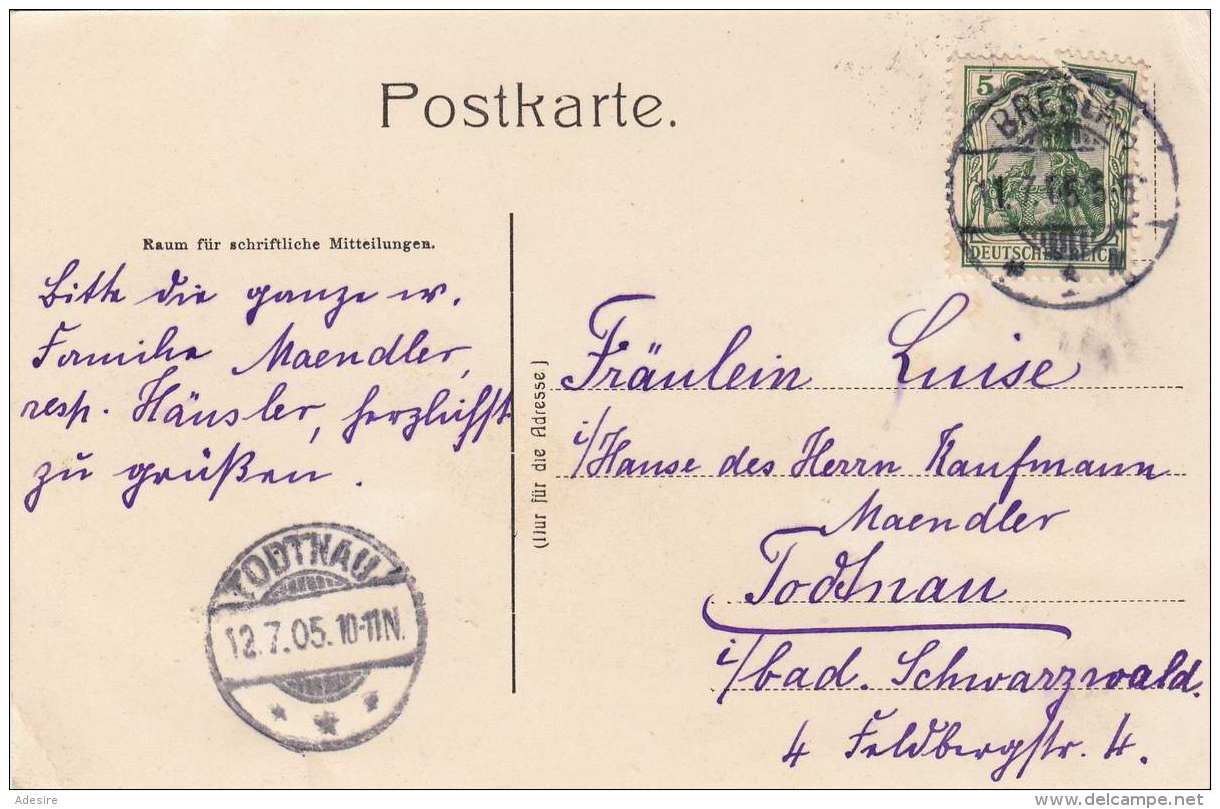 Postkarte.
5 5
BRESLAU
11.7.05.5-6.
DEUTSCHES REICH
* 1 N
Raum für schriftliche Mitteilungen.
Bitte die ganze w.
Familie Maendler,
resp. Häusler, herzlichst
zu grüßen.
(Nur für die Adresse)
Fräulein Luise
i/Hause des Herrn Kaufmann
Maendler
Todtnau
i/bad. Schwarzwald.
4 Feldbergstr. 4.
TODTNAU
12.7.05.10-11N.
* * *
Adesire
delcampe.net